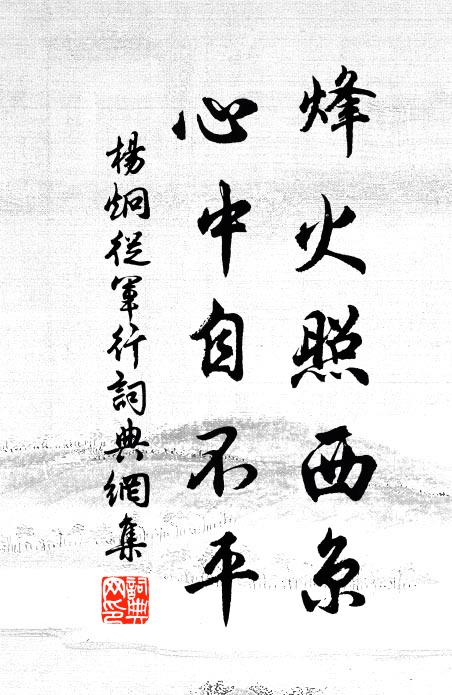 烽火照西京
心中自不平
楊炯從軍行詞典網集
詞典
网